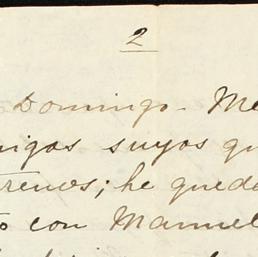 2
Domingo. Me
migos suyos qu
trenos; he queda
to con Manuel